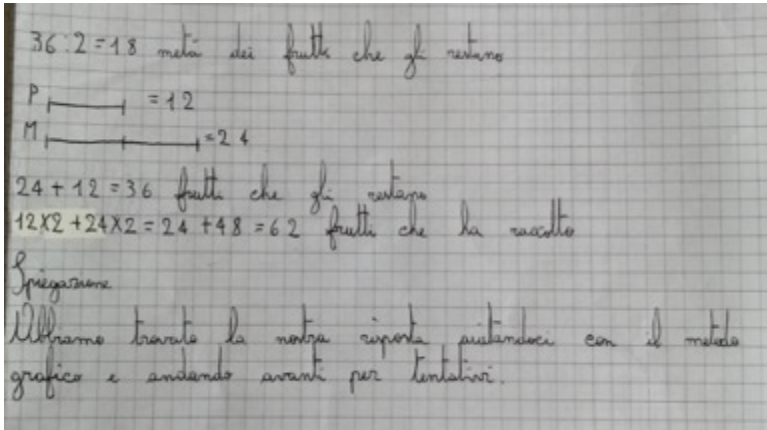 36:2=18 metà dei frutti che gli restano
P = 12
M = 24
24 + 12 = 36 frutti che gli restano
12X2 + 24X2 = 24 + 48 = 62 frutti che ha raccolto
Spiegazione
Abbiamo trovato la nostra risposta aiutandoci con il metodo
grafico e andando avanti per tentativi.